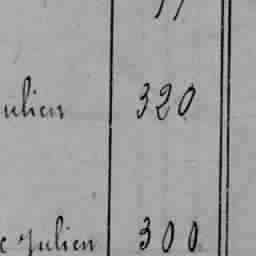 ulien 320
Julien 300